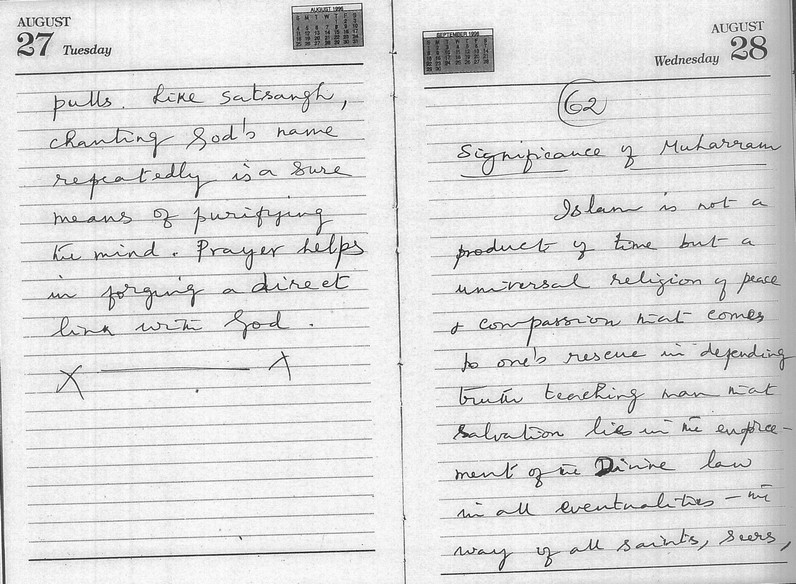 AUGUST
27 Tuesday
AUGUST 1996
pulls. Like satsangh,
chanting God's name
repeatedly is a sure
means of purifying
the mind. Prayer helps
in forging a direct
link with God.
X X
SEPTEMBER 1996
AUGUST
Wednesday 28
62
Significance of Muharram
Islam is not a
product of time but a
universal religion of peace
& compassion that comes
to one's rescue in defending
truth teaching man that
salvation lies in the enforce-
ment of the Divine law
in all eventualities – the
way of all saints, seers,